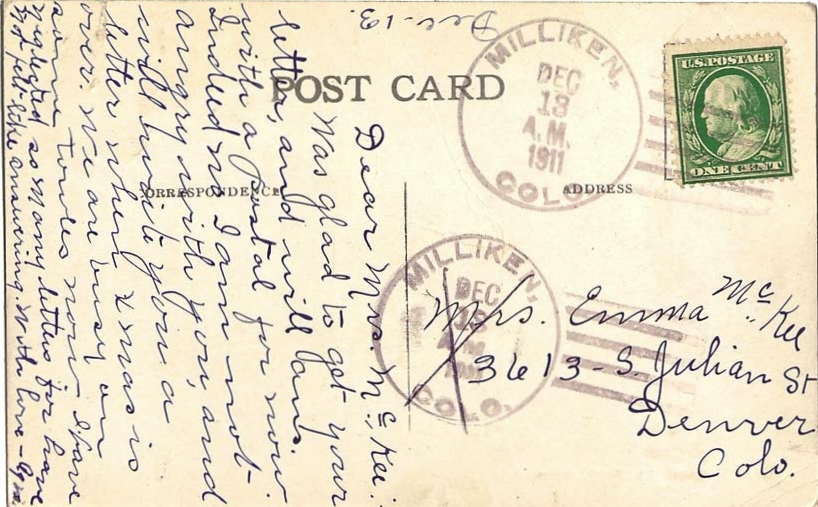 Dec-13.
POST CARD
CORRESPONDENCE
ADDRESS
MILLIKEN,
DEC
13
A.M.
1911
COLO.
U.S. POSTAGE
ONE CENT
MILLIKEN,
DEC
13
A.M.
COLO.
Mrs. Emma McKee
3613-S. Julian St
Denver
Colo.
Dear Mrs. McKee:
Was glad to get your
letter, and will ans.
with a postal for now.
Indeed no I am not
angry with you, and
will write you a
letter when Xmas is
over. We are busy on
some now. I have
neglected so many letters for have
not felt like answering. With love -